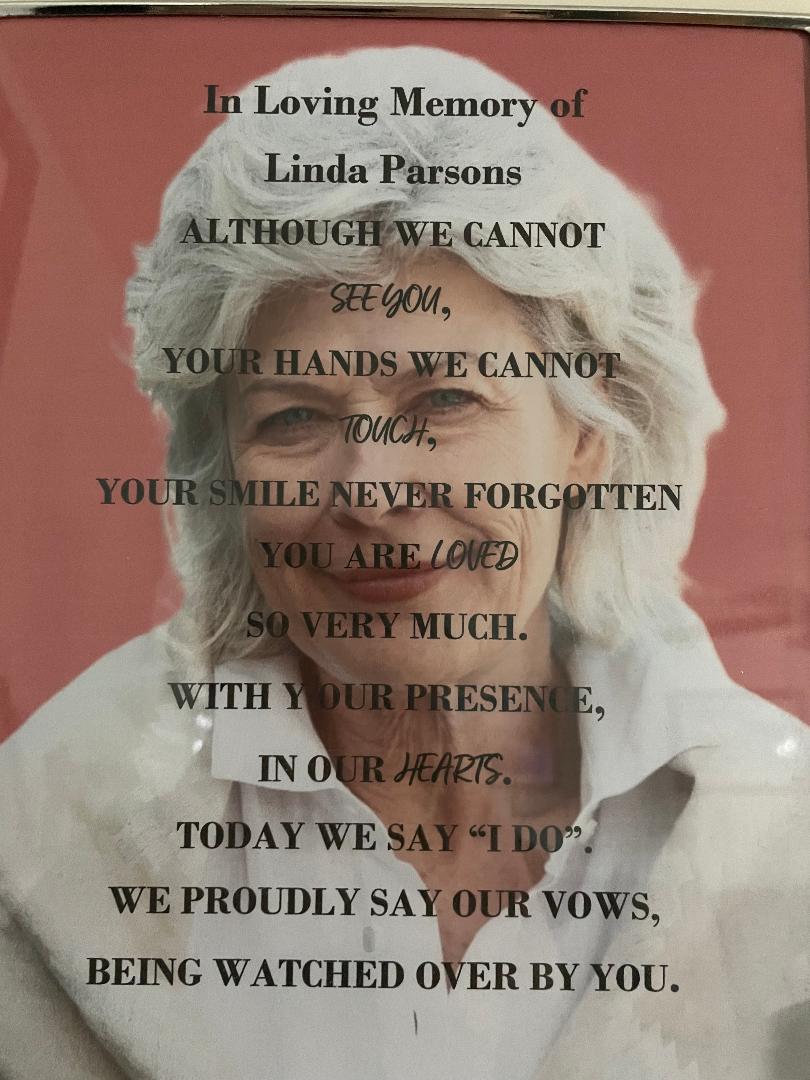 In Loving Memory of
Linda Parsons
ALTHOUGH WE CANNOT
SEE YOU,
YOUR HANDS WE CANNOT
TOUCH,
YOUR SMILE NEVER FORGOTTEN
YOU ARE LOVED
SO VERY MUCH.
WITH Y OUR PRESENCE,
IN OUR HEARTS.
TODAY WE SAY “I DO”.
WE PROUDLY SAY OUR VOWS,
BEING WATCHED OVER BY YOU.